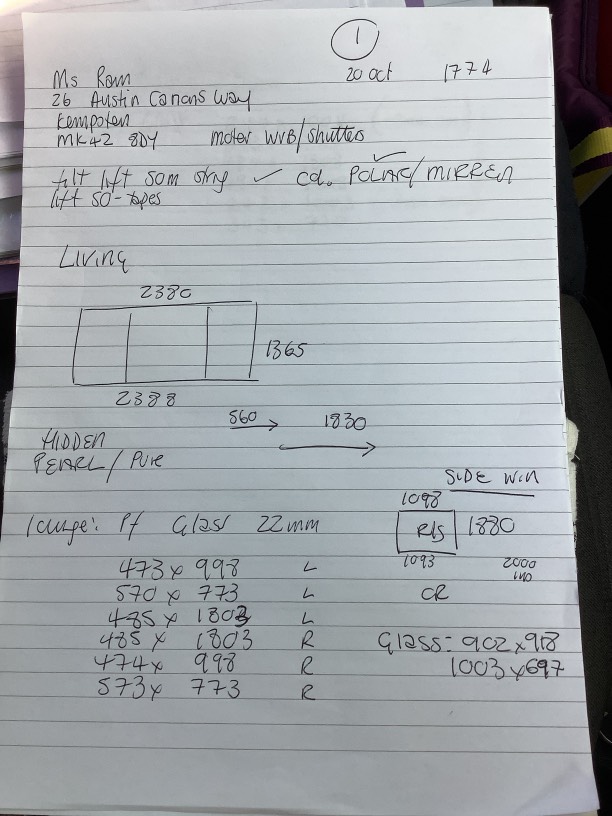 1
20 oct 1774
Ms Ram
26 Austin Canons Way
Kempsten
MK42 8DY motor WVB/shutter
tilt lift som strg ✓ col. POLAR/MIRREN ✓
lift SO-tapes
LIVING
2380
1365
2388
560 → 1830
HIDDEN
PEARL/Pure
SIDE WIN
1098
lounge: Pf Glass 22mm R/S 1880
473 x 998 L 1093 2000
570 x 773 L CR
485 x 1803 L
485 x 1803 R Glass: 902 x 918
474 x 998 R 1003 x 697
573 x 773 R